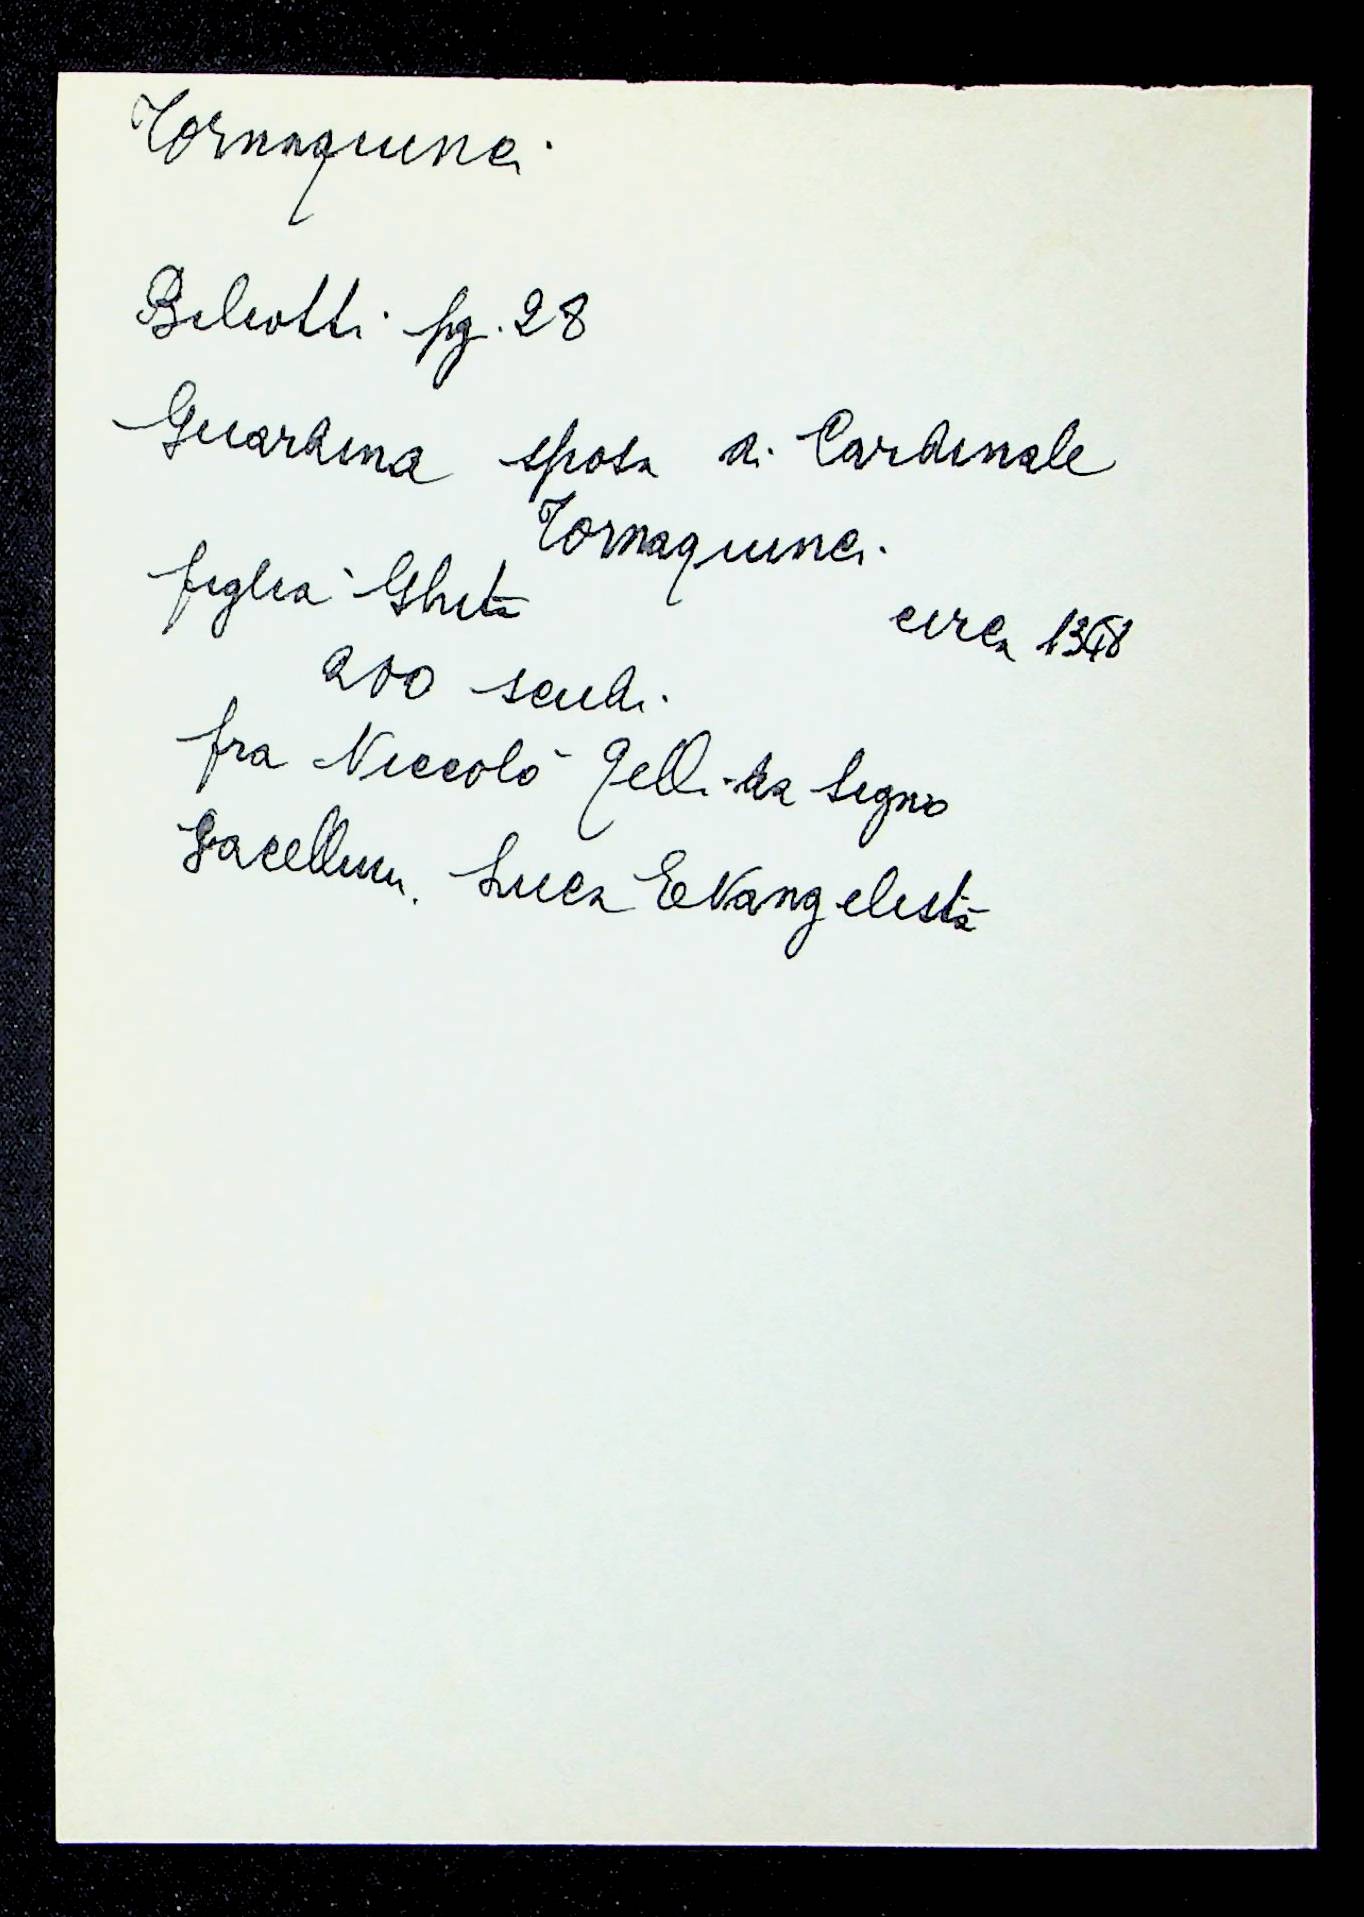 Tornaquinci
Biliotti pg. 28
Guardina sposa di Cardinale
Tornaquinci
figlia Ghita
circa 1348
200 scudi
fra Niccolò Gelli da Signo
Sacellum. Luca Evangelista